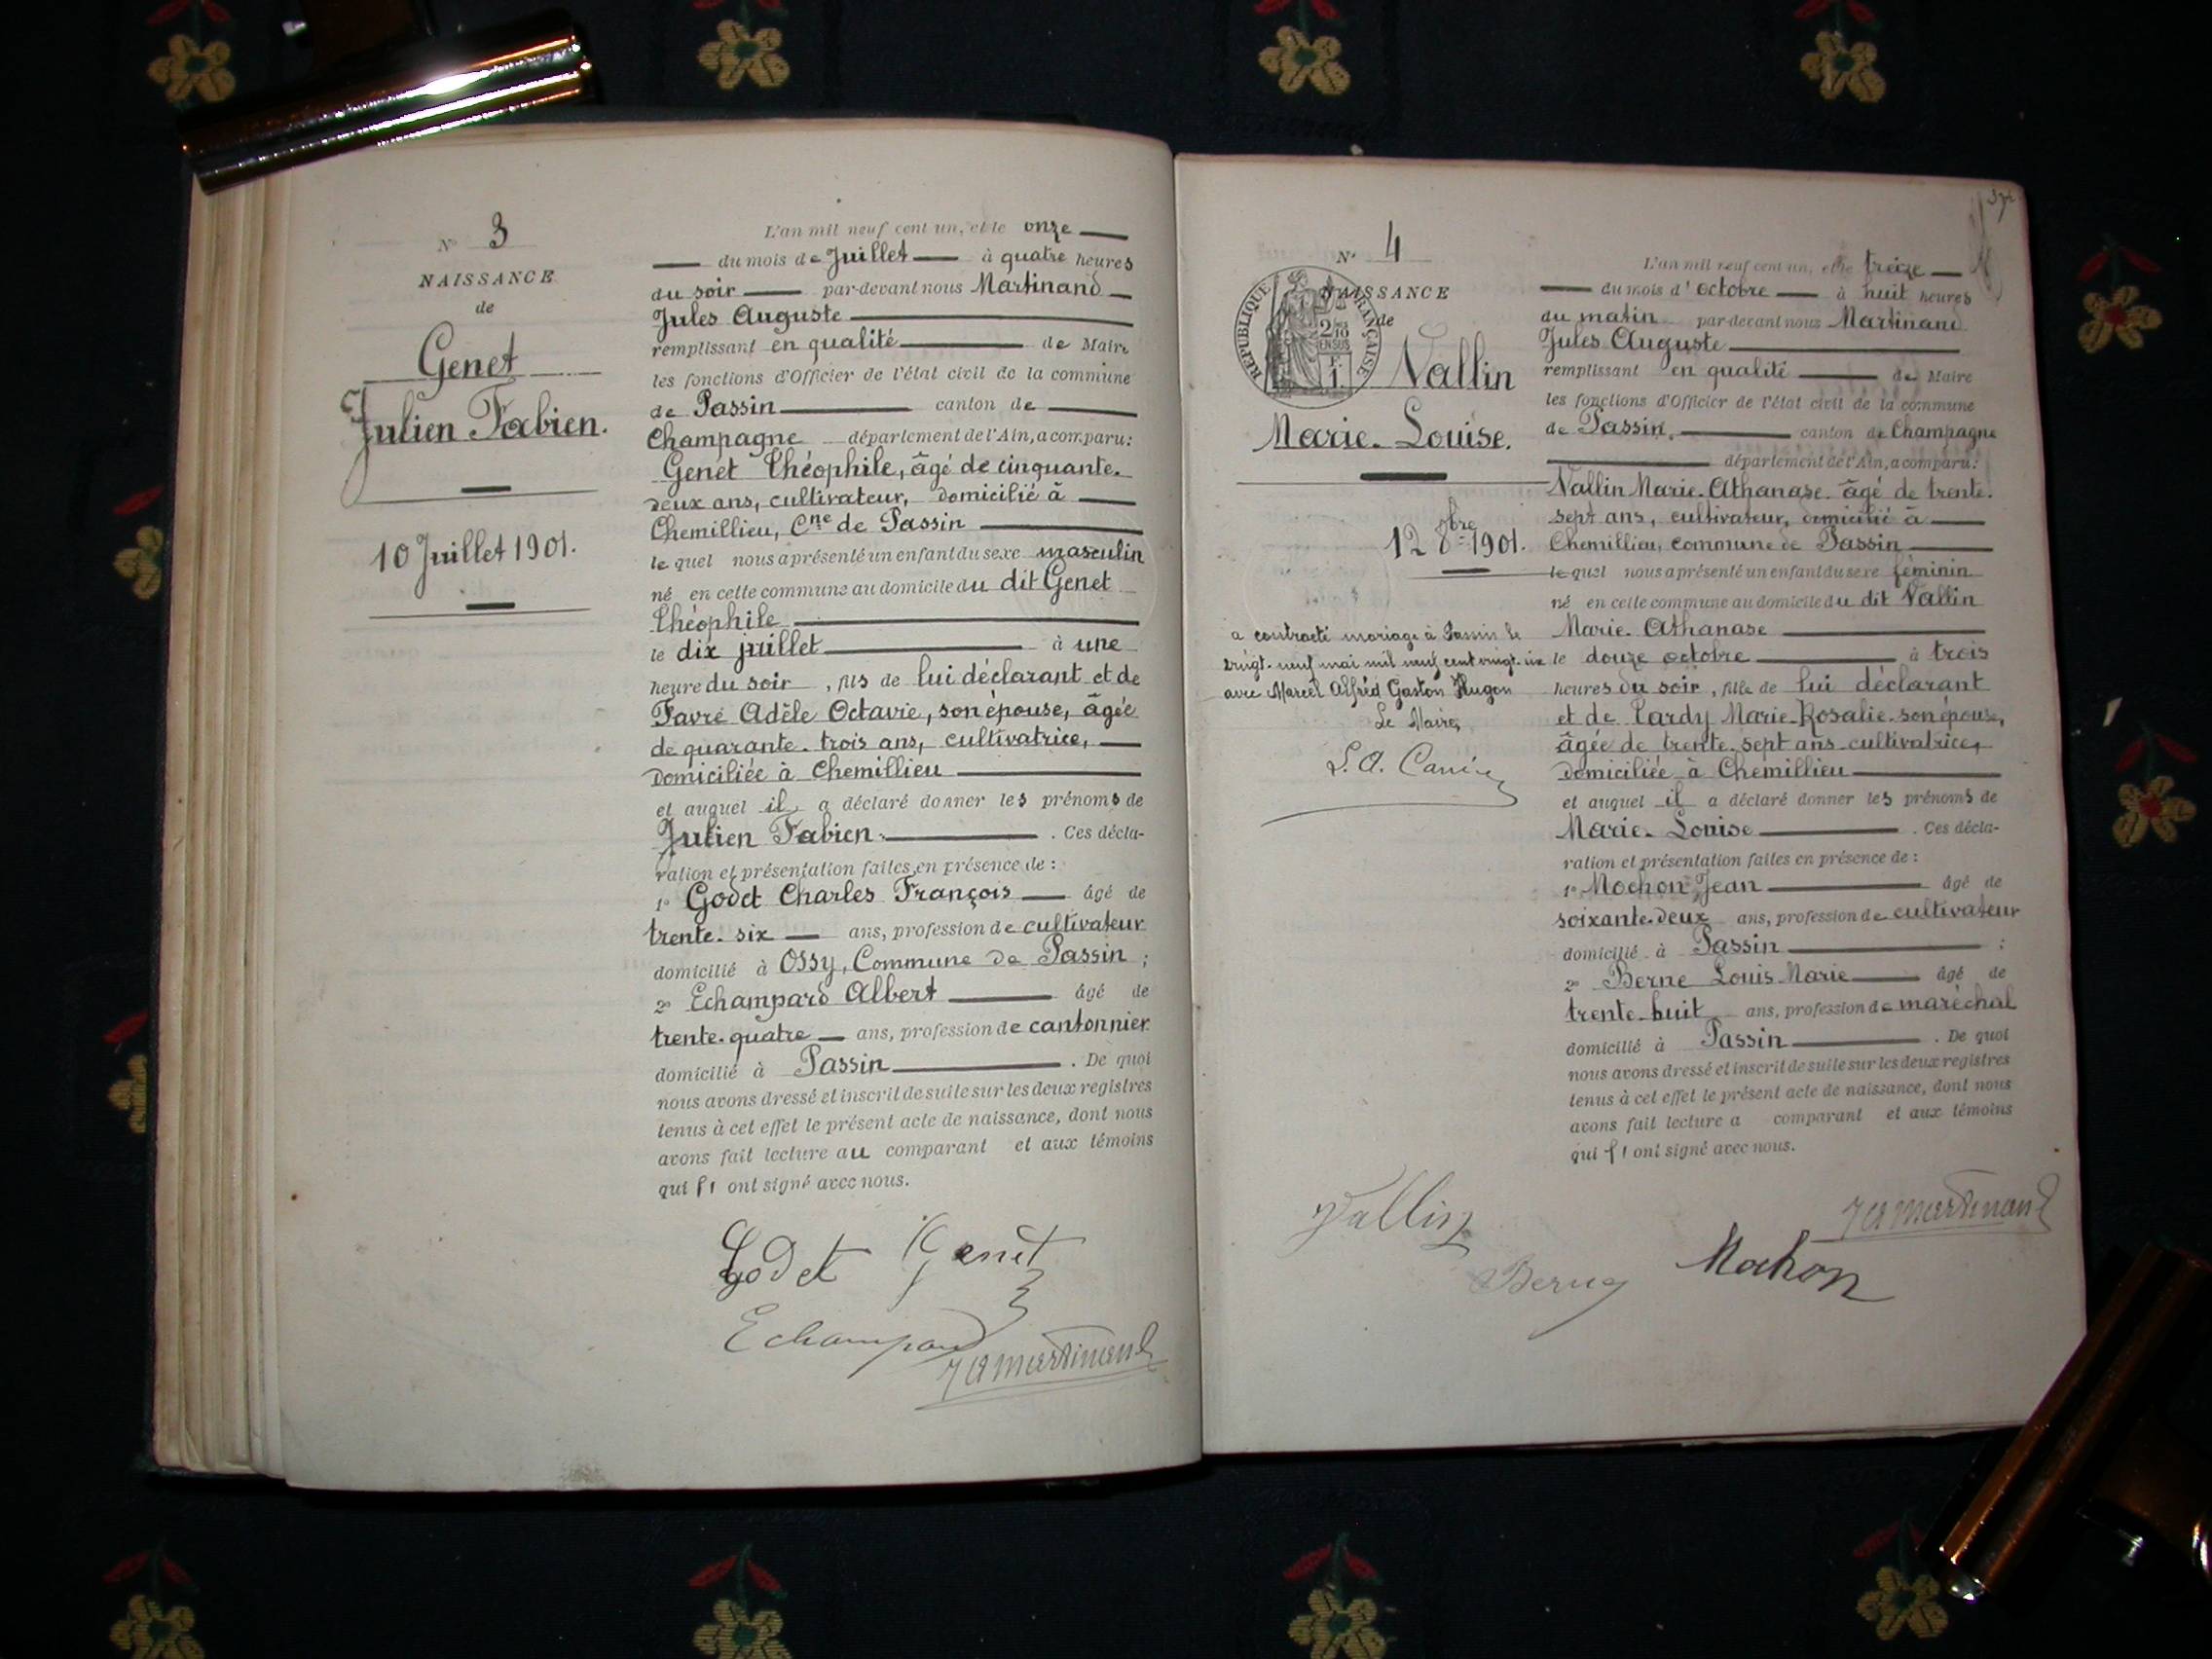 N° 3
NAISSANCE
de
Genet
Julien Fabien.
10 Juillet 1901.
L'an mil neuf cent un, et le onze
du mois de Juillet à quatre heures
du soir par-devant nous Martinand
Jules Auguste
remplissant en qualité de Maire
les fonctions d'Officier de l'état civil de la commune
de Passin canton de
Champagne département de l'Ain, a comparu:
Genet Théophile, âgé de cinquante-
deux ans, cultivateur, domicilié à
Chemillieu, Cne de Passin
le quel nous a présenté un enfant du sexe masculin
né en cette commune au domicile du dit Genet
Théophile
le dix juillet à une
heure du soir, fils de lui déclarant et de
Favre Adèle Octavie, son épouse, âgée
de quarante-trois ans, cultivatrice,
domiciliée à Chemillieu
et auquel il a déclaré donner les prénoms de
Julien Fabien. Ces décla-
ration et présentation faites en présence de :
1° Godet Charles François âgé de
trente-six ans, profession de cultivateur
domicilié à Ossy, Commune de Passin ;
2° Echampard Albert âgé de
trente-quatre ans, profession de cantonnier
domicilié à Passin. De quoi
nous avons dressé et inscrit de suite sur les deux registres
tenus à cet effet le présent acte de naissance, dont nous
avons fait lecture au comparant et aux témoins
qui ont signé avec nous.
Godet Genet
Echampard
J A Martinand
N° 4
NAISSANCE
de
RÉPUBLIQUE FRANÇAISE
Vallin
Marie-Louise.
12 8bre 1901.
a contracté mariage à Passin le
vingt-neuf mai mil neuf cent vingt-six
avec Marcel Alfred Gaston Hugon
Le Maire,
L'an mil neuf cent un, et le treize
du mois d'octobre à huit heures
du matin par-devant nous Martinand
Jules Auguste
remplissant en qualité de Maire
les fonctions d'Officier de l'état civil de la commune
de Passin, canton de Champagne
département de l'Ain, a comparu:
Vallin Marie-Athanase âgé de trente-
sept ans, cultivateur, domicilié à
Chemillieu, commune de Passin
le quel nous a présenté un enfant du sexe féminin
né en cette commune au domicile du dit Vallin
Marie-Athanase
le douze octobre à trois
heures du soir, fille de lui déclarant
et de Tardy Marie-Rosalie son épouse,
âgée de trente-sept ans cultivatrice,
domiciliée à Chemillieu
et auquel il a déclaré donner les prénoms de
Marie-Louise. Ces décla-
ration et présentation faites en présence de :
1° Mochon Jean âgé de
soixante-deux ans, profession de cultivateur
domicilié à Passin :
2° Berne Louis Marie âgé de
trente-huit ans, profession de maréchal
domicilié à Passin. De quoi
nous avons dressé et inscrit de suite sur les deux registres
tenus à cet effet le présent acte de naissance, dont nous
avons fait lecture a comparant et aux témoins
qui ont signé avec nous.
Vallin
J A Martinand
Berne Mochon